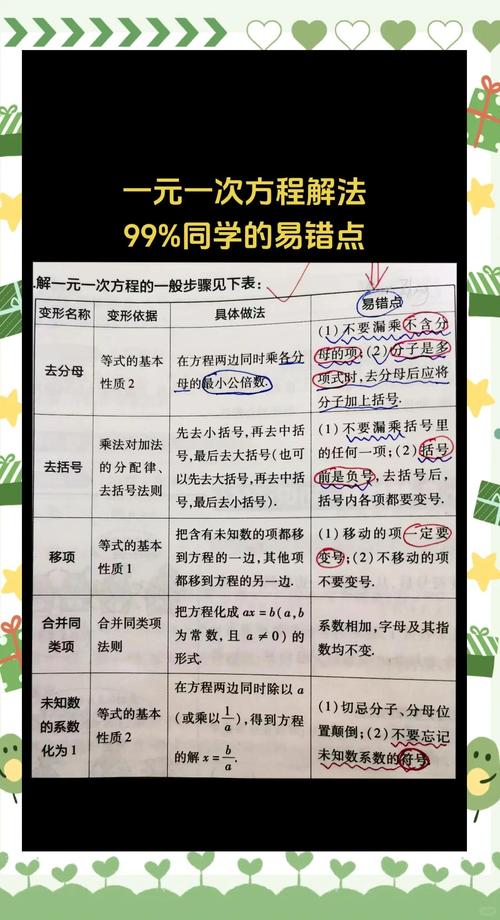 一元一次方程解法
99%同学的易错点
.解一元一次方程的一般步骤见下表:
变形名称
变形依据
具体做法
易错点
去分母
等式的基本
性质2
在方程两边同时乘各分
母的最小公倍数.
(1)不要漏乘不含分
母的项;(2)分子是多
项式时,去分母后应将
分子加上括号.
去括号
乘法对加法
的分配律、
去括号法则
先去小括号,再去中括
号,最后去大括号(也可
以先去大括号,再去中括
号,最后去小括号).
(1)不要漏乘括号里
的任何一项;(2)括号
前是负号,去括号后,
括号内各项都要变号.
移项
等式的基本
性质1
把含有未知数的项都移
到方程的一边,其他项
都移到方程的另一边.
(1)移动的项一定要
变号;(2)不移动的项
不要变号.
合并同
类项
合并同类项
法则
把方程化成ax=b(a,b
为常数,且a≠0)的
形式.
系数相加,字母及其指
数均不变.
未知数
的系数
化为1
等式的基本
性质2
在方程两边同时除以a
(或乘以1/a),得到方程
的解x=b/a.
(1)切忌分子、分母位
置颠倒;(2)不要忘记
未知数系数的符号